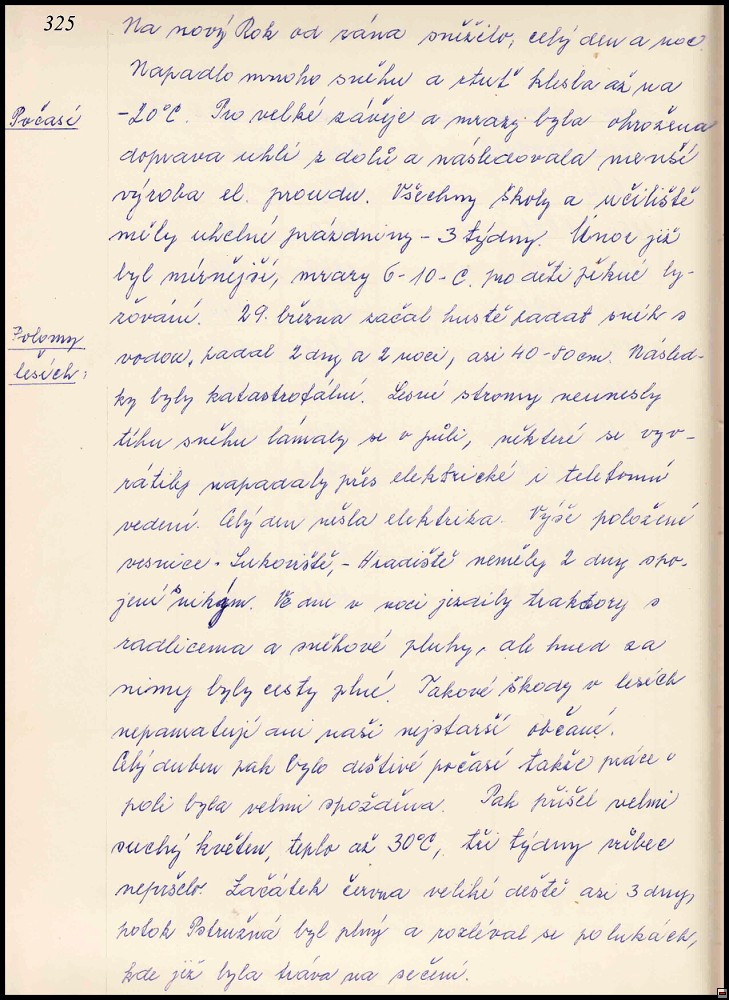 325
Na nový Rok od rána sněžilo, celý den a noc.
Napadlo mnoho sněhu a rtuť klesla až na
Počasí
-20°C. Pro velké závěje a mrazy byla ohrožena
doprava uhlí z dolů a následovala menší
výroba el. proudu. Všechny školy a učiliště
měly uhelné prázdniny - 3 týdny. Únor již
byl mírnější, mrazy 6-10-C. pro děti pěkné ly-
žování. 29. března začal hustě padat sníh s
Polomy v lesích:
vodou, padal 2 dny a 2 noci, asi 40-80cm. Násled-
ky byly katastrofální. Lesní stromy neunesly
tíhu sněhu lámaly se v půli, některé se vyv-
rátily napadaly přes elektrické i telefonní
vedení. Celý den nešla elektrika. Výše položené
vesnice - Lukoviště, - Hradiště neměly 2 dny spo-
jení s nikým. Ve dne v noci jezdily traktory s
radlicema a sněhové pluhy, ale hned za
nimy byly cesty plné. Takové škody v lesích
nepamatují ani naši nejstarší občané.
Celý duben pak bylo deštivé počasí takže práce v
poli byla velmi zpožděna. Pak přišel velmi
suchý květen, teplo až 30°C, tři týdny vůbec
nepršelo. Začátek června veliké deště asi 3 dny,
potok Pstružná byl plný a rozléval se po lukách,
kde již byla tráva na sečení.